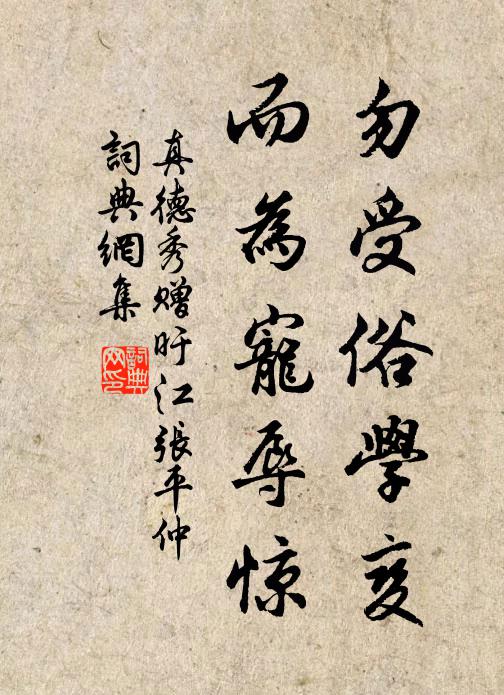 勿受俗學变
而為寵辱惊
真德秀赠旴江張平仲
詞典網集
詞典网印